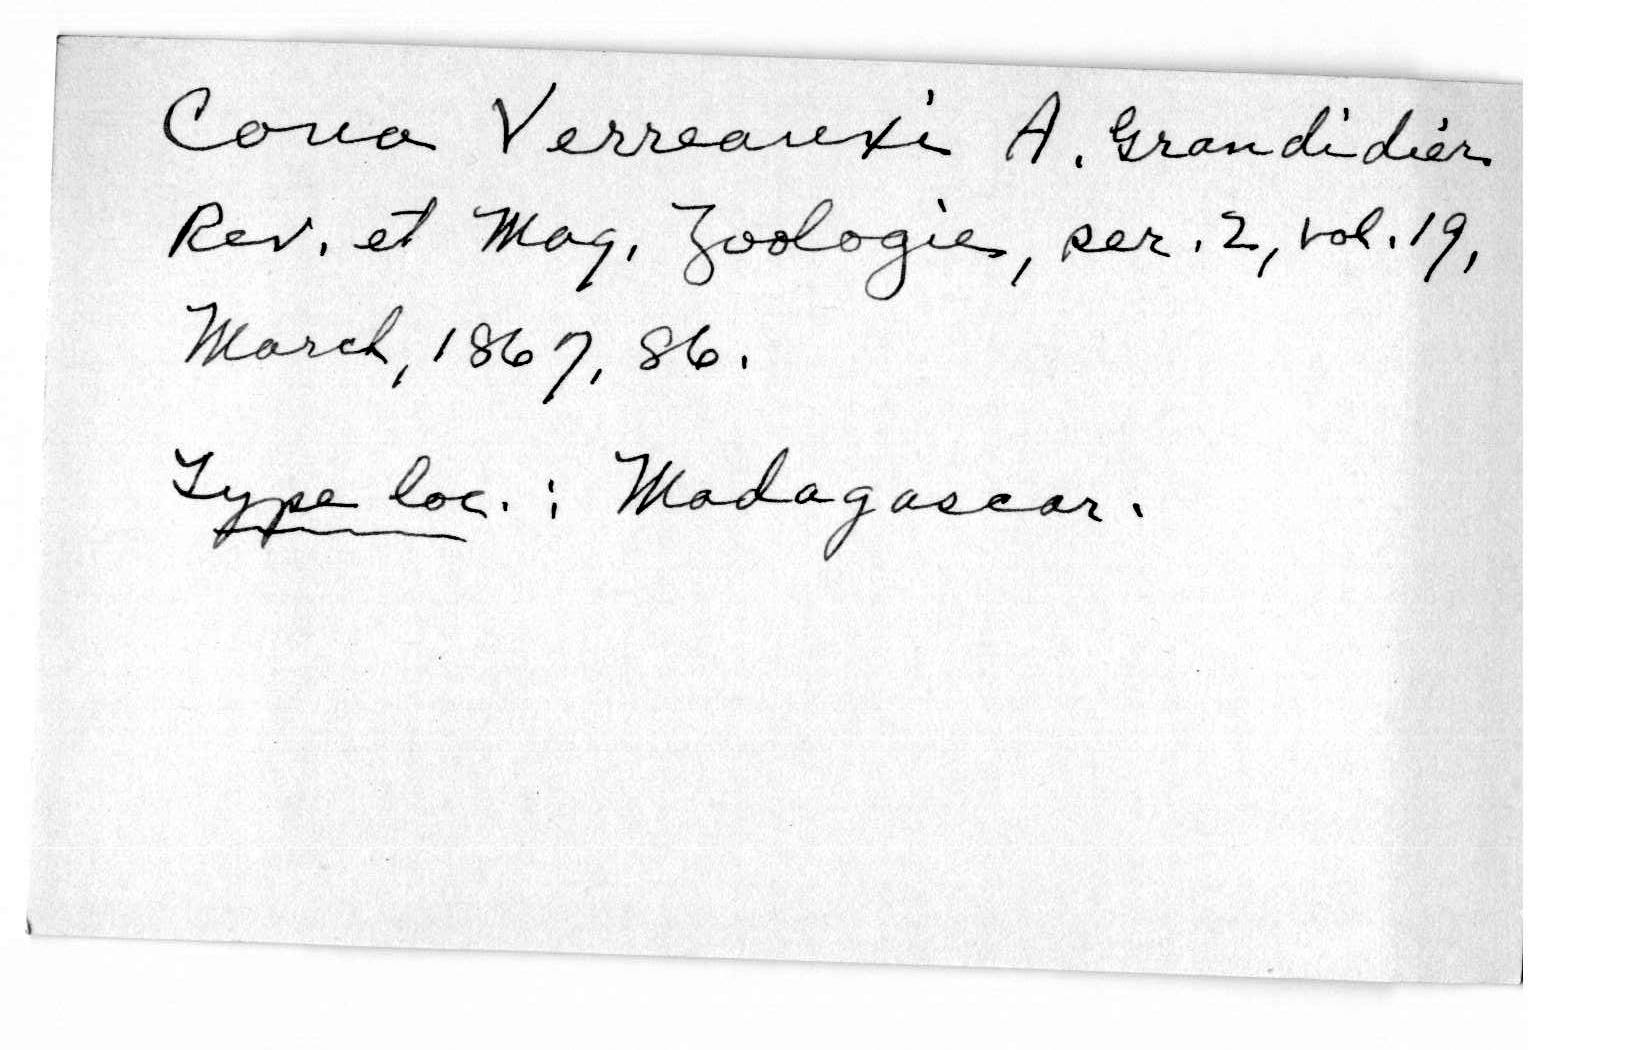 Coua Verreauxi A. Grandidier
Rev. et Mag. Zoologie, ser. 2, vol. 19,
March, 1867, 86.
Type loc. : Madagascar.